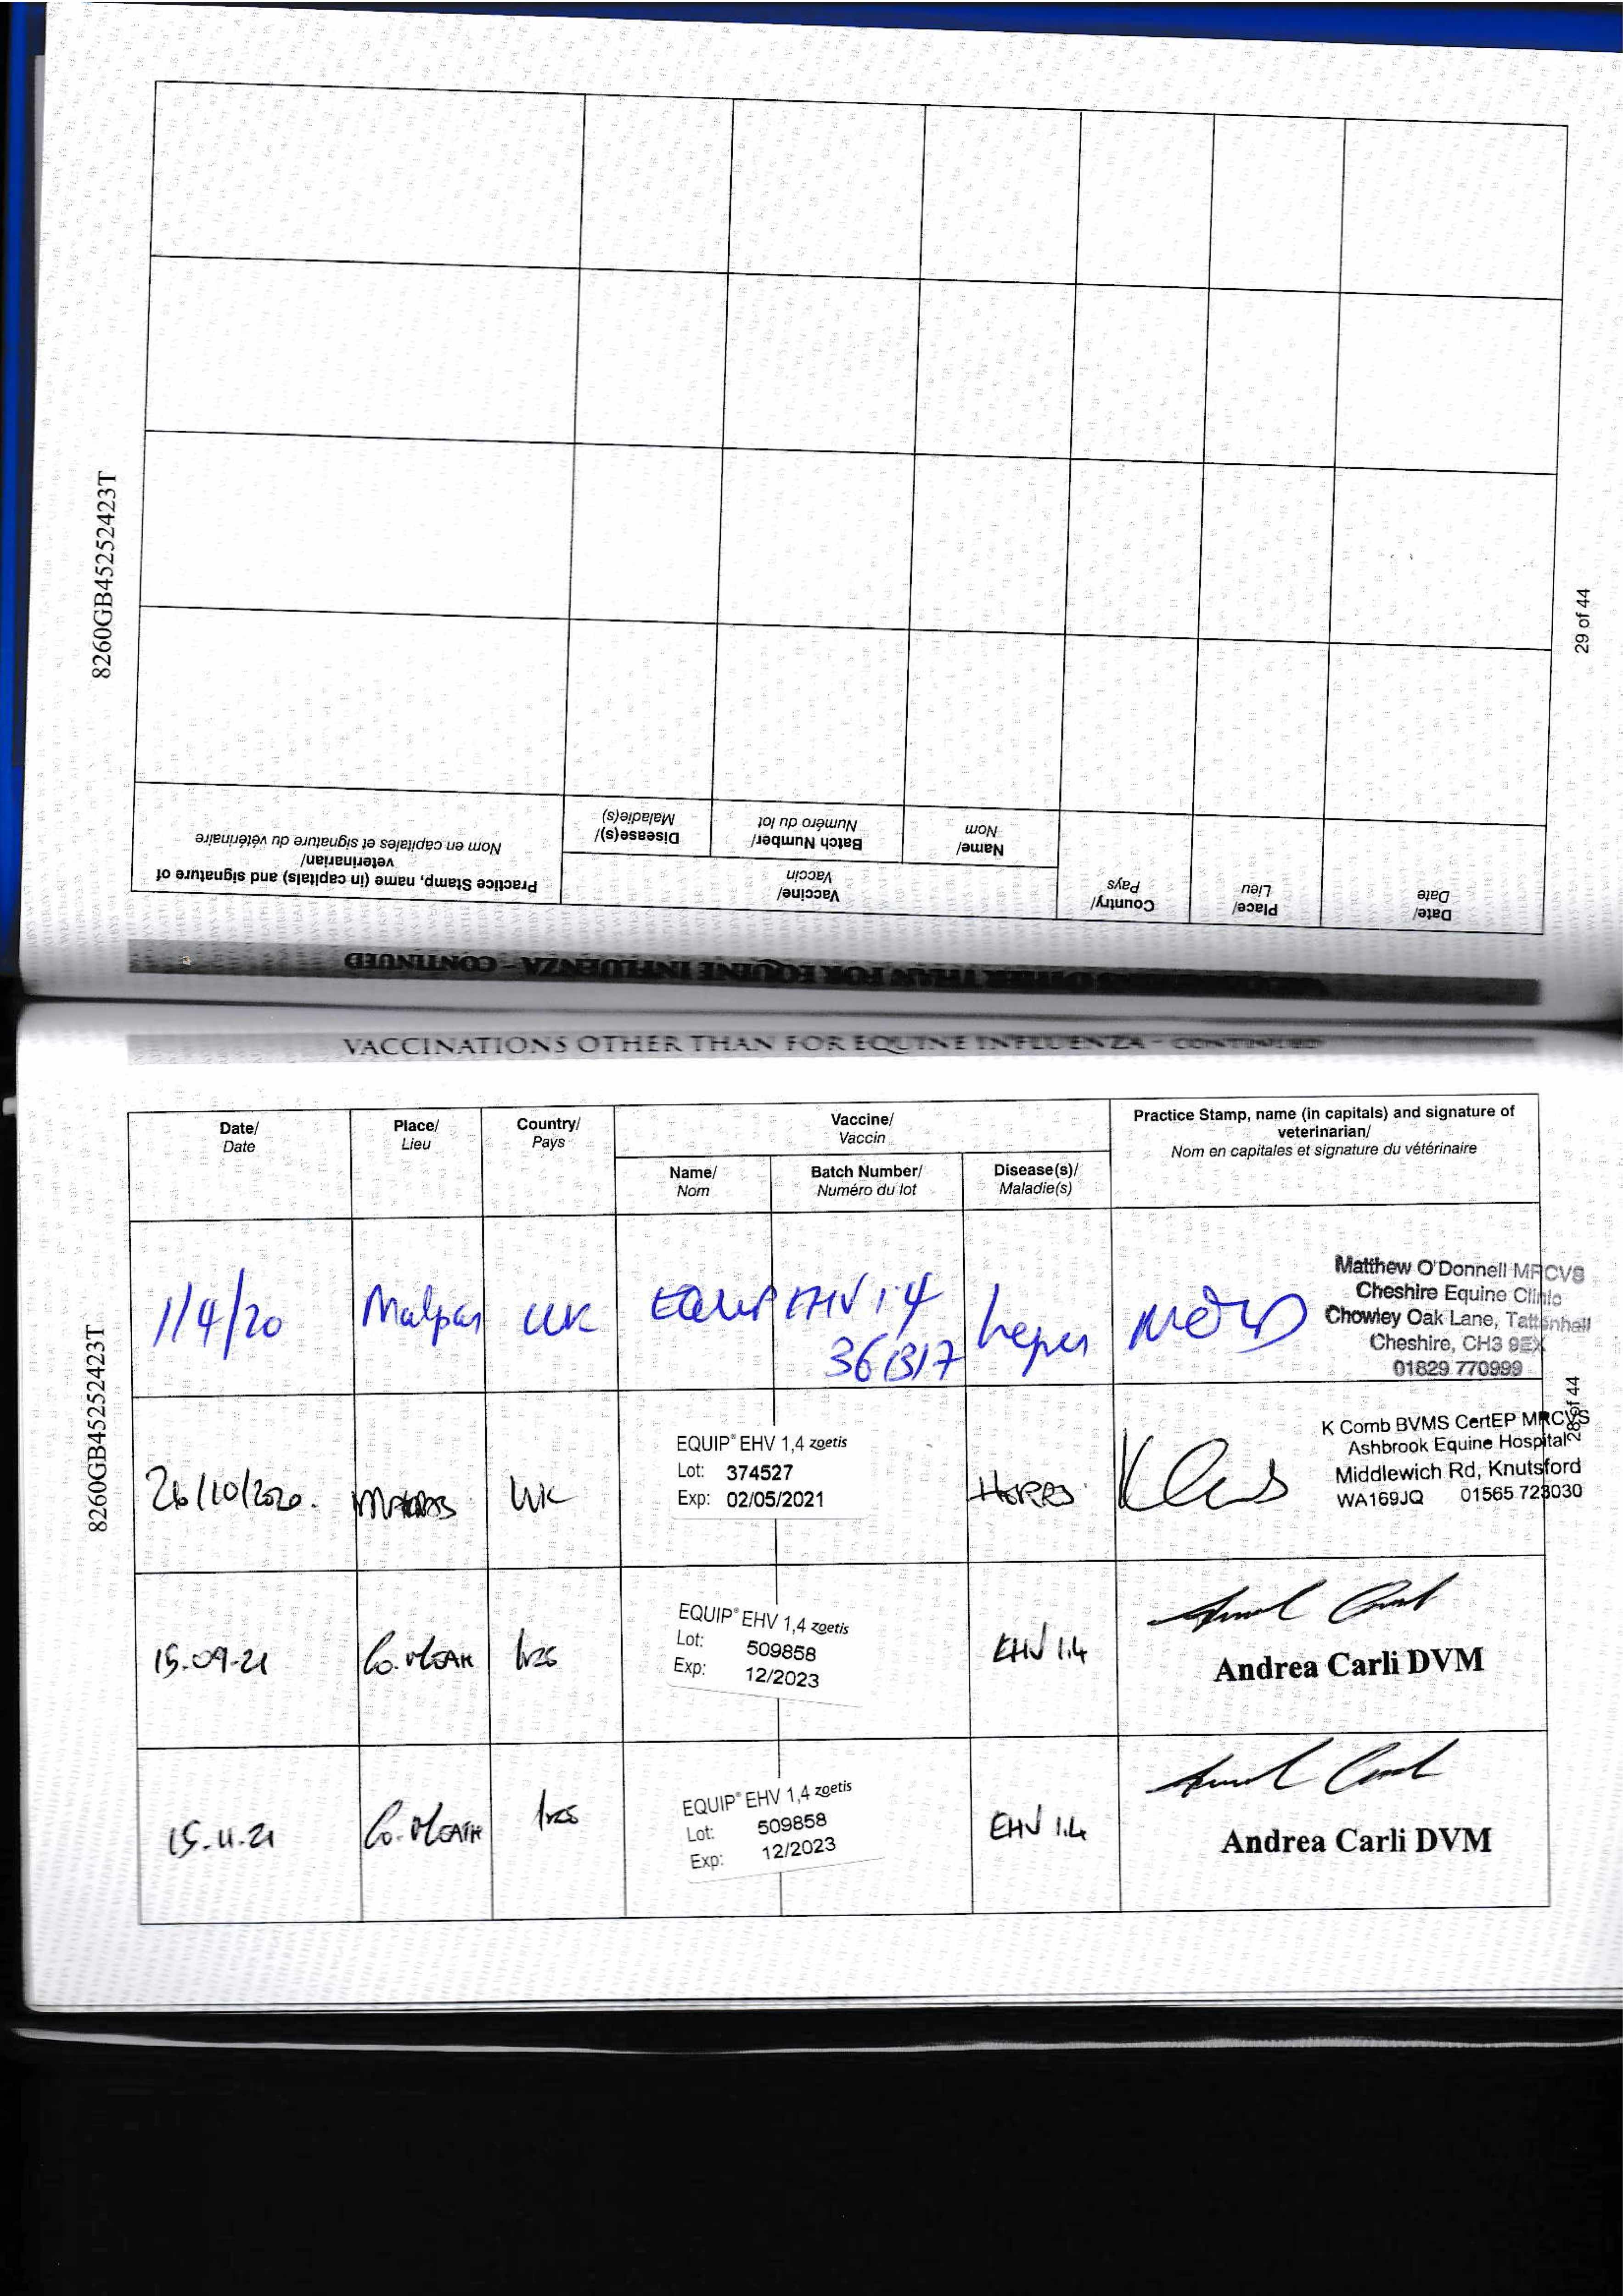 8260GB45252423T
29 of 44
VACCINATIONS OTHER THAN FOR EQUINE INFLUENZA - CONTINUED
Date/
Date
Place/
Lieu
Country/
Pays
Vaccine/
Vaccin
Name/
Nom
Batch Number/
Numéro du lot
Disease(s)/
Maladie(s)
Practice Stamp, name (in capitals) and signature of
veterinarian/
Nom en capitales et signature du vétérinaire
VACCINATIONS OTHER THAN FOR EQUINE INFLUENZA - CONTINUED
Date/
Date
Place/
Lieu
Country/
Pays
Vaccine/
Vaccin
Name/
Nom
Batch Number/
Numéro du lot
Disease(s)/
Maladie(s)
Practice Stamp, name (in capitals) and signature of
veterinarian/
Nom en capitales et signature du vétérinaire
8260GB45252423T
28 of 44
1/4/20
Malpas
UK
EQUIP EHV 1 4
361317
herpes
Matthew O'Donnell MRCVS
Cheshire Equine Clinic
Chowley Oak Lane, Tattenhall
Cheshire, CH3 9EX
01829 770999
26/10/2020.
UK
EQUIP® EHV 1,4 zoetis
Lot: 374527
Exp: 02/05/2021
K Comb BVMS CertEP MRCVS
Ashbrook Equine Hospital
Middlewich Rd, Knutsford
WA169JQ 01565 723030
15.09.21
Co. MEATH
EQUIP® EHV 1,4 zoetis
Lot: 509858
Exp: 12/2023
EHV 1.4
Andrea Carli DVM
15.11.21
Co. MEATH
EQUIP® EHV 1,4 zoetis
Lot: 509858
Exp: 12/2023
EHV 1.4
Andrea Carli DVM